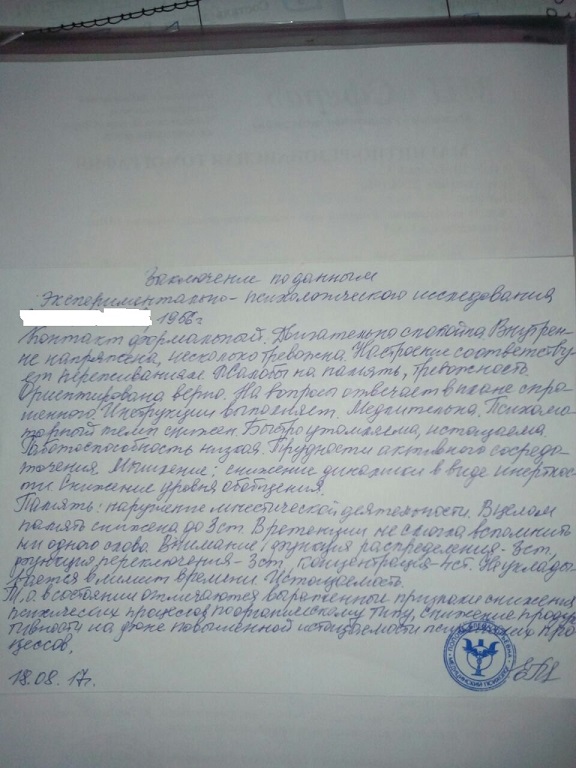 Заключение по данным
экспериментально-психологического исследования
1966г
Контакт формальный. Двигательно спокойна. Внутрен-
не напряжена, несколько тревожна. Настроение соответству-
ет переживаниям. Жалобы на память, тревожность.
Ориентирована верно. На вопросы отвечает в плане спро-
шенного. Инструкции выполняет. Медлительна. Психомо-
торный темп снижен. Быстро утомляема, истощаема.
Работоспособность низкая. Трудности активного сосредо-
точения. Мышление: снижение динамики в виде инертнос-
ти. Снижение уровня обобщения.
Память: нарушение мнестической деятельности. В целом
память снижена до 3ст. В ретенции не смогла вспомнить
ни одного слова. Внимание: функция распределения - 3ст,
функция переключения - 3ст, концентрация - 4ст. Не уклады-
вается в лимит времени. Истощаемость.
Т.о. в состоянии отмечаются выраженные признаки снижения
психических процессов по органическому типу, снижение продук-
тивности на фоне повышенной истощаемости психических про
цессов.
18.08.17г.
МЕДИЦИНСКИЙ ПСИХОЛОГ